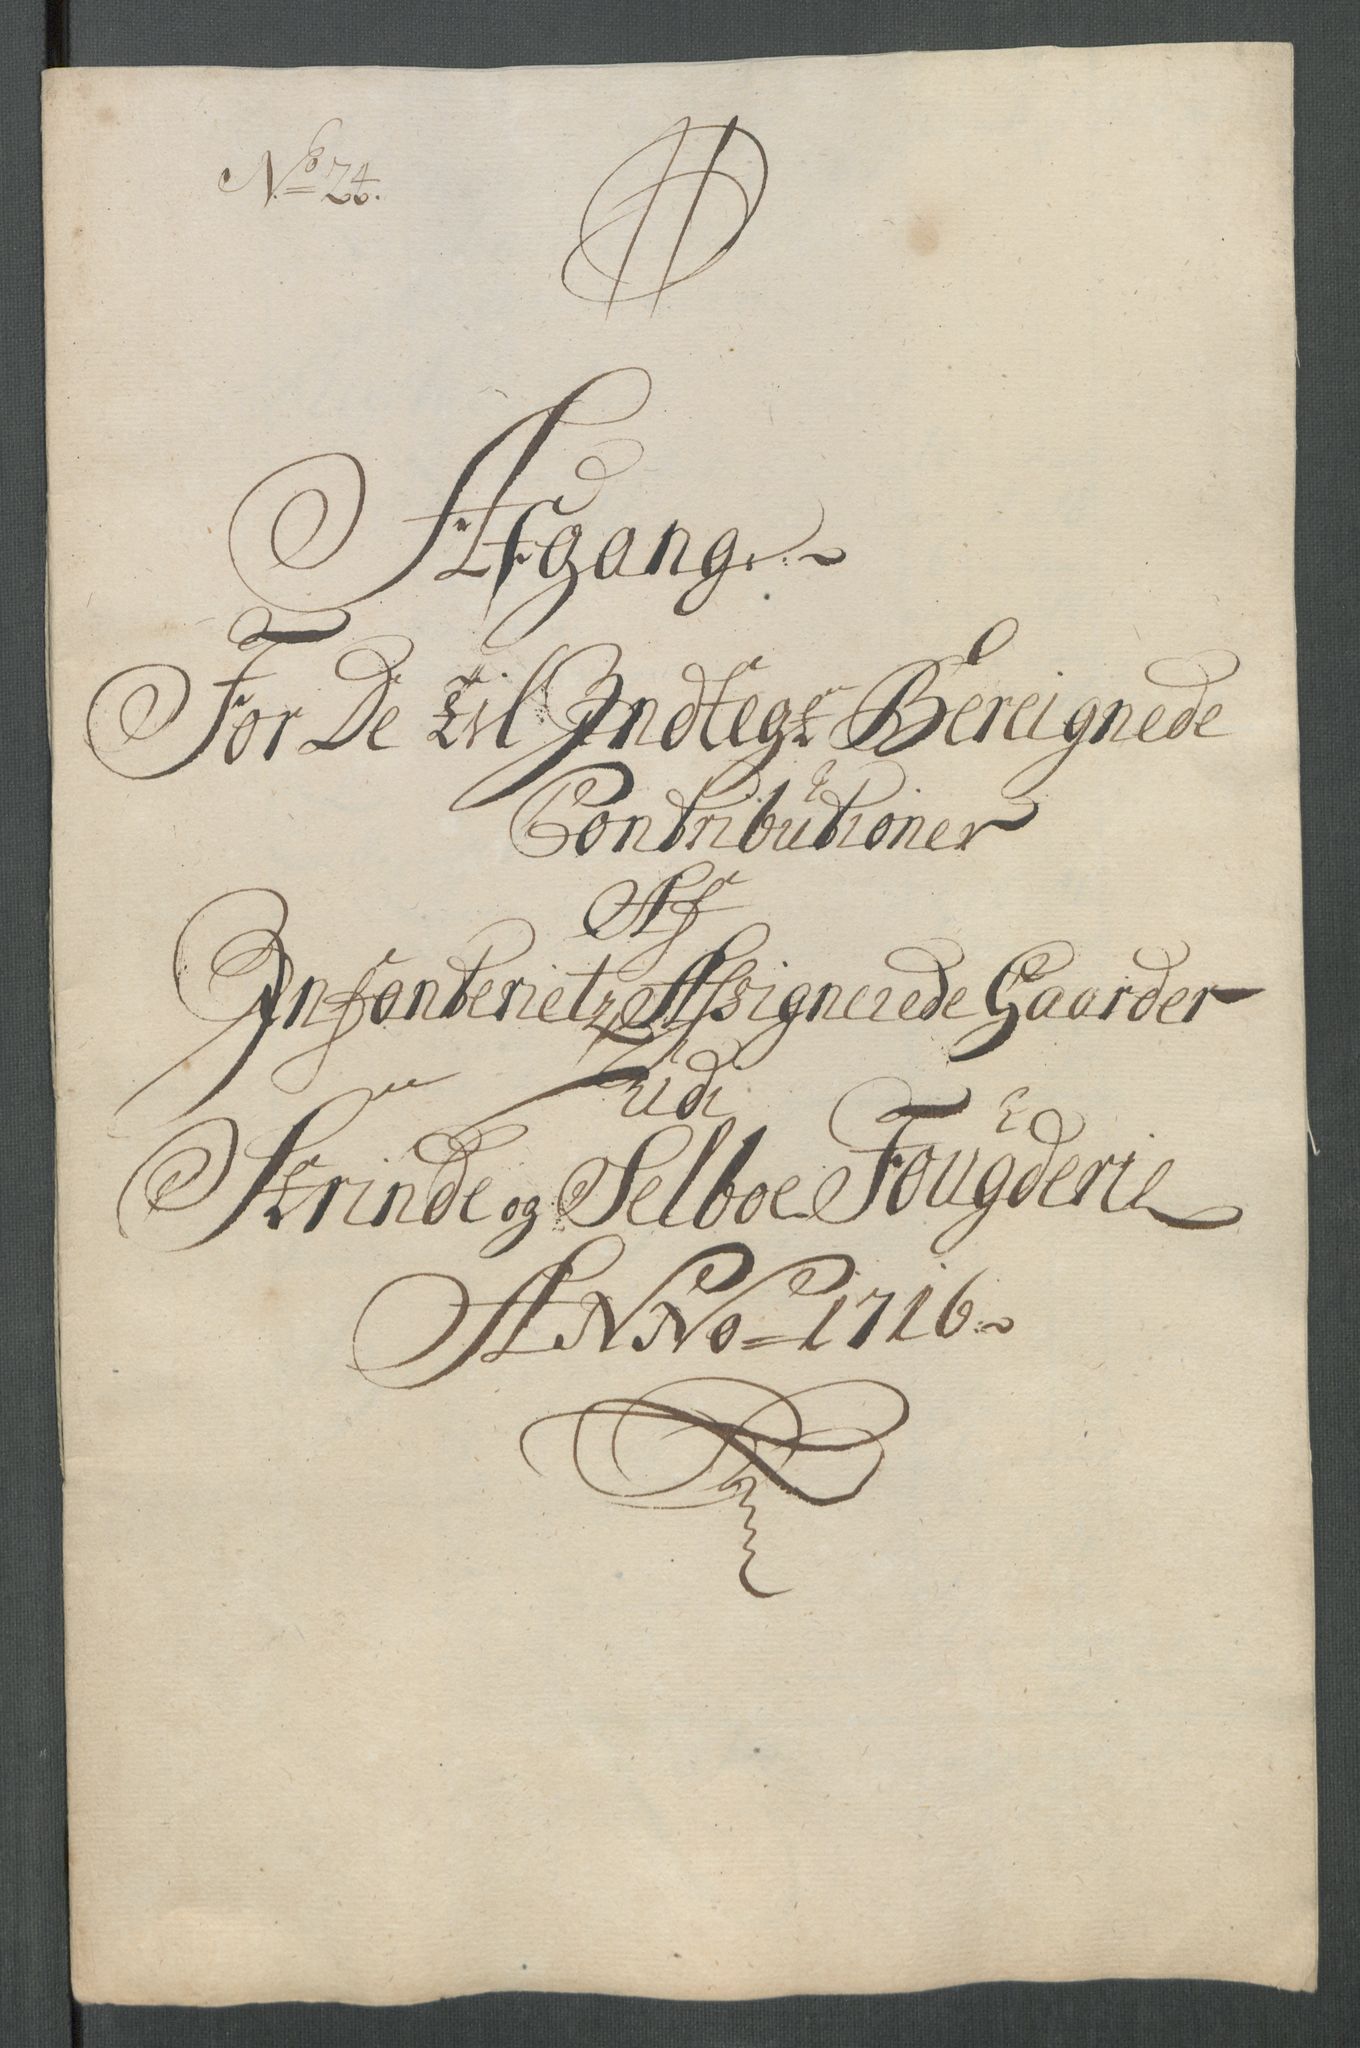 No 24.
Afgang
For De til Indtegt Bereignede
Contributioner
Af
Infanteriets Assignerede Gaarder
Udi
Strinde og Selboe Fougderie
ANNo 1716